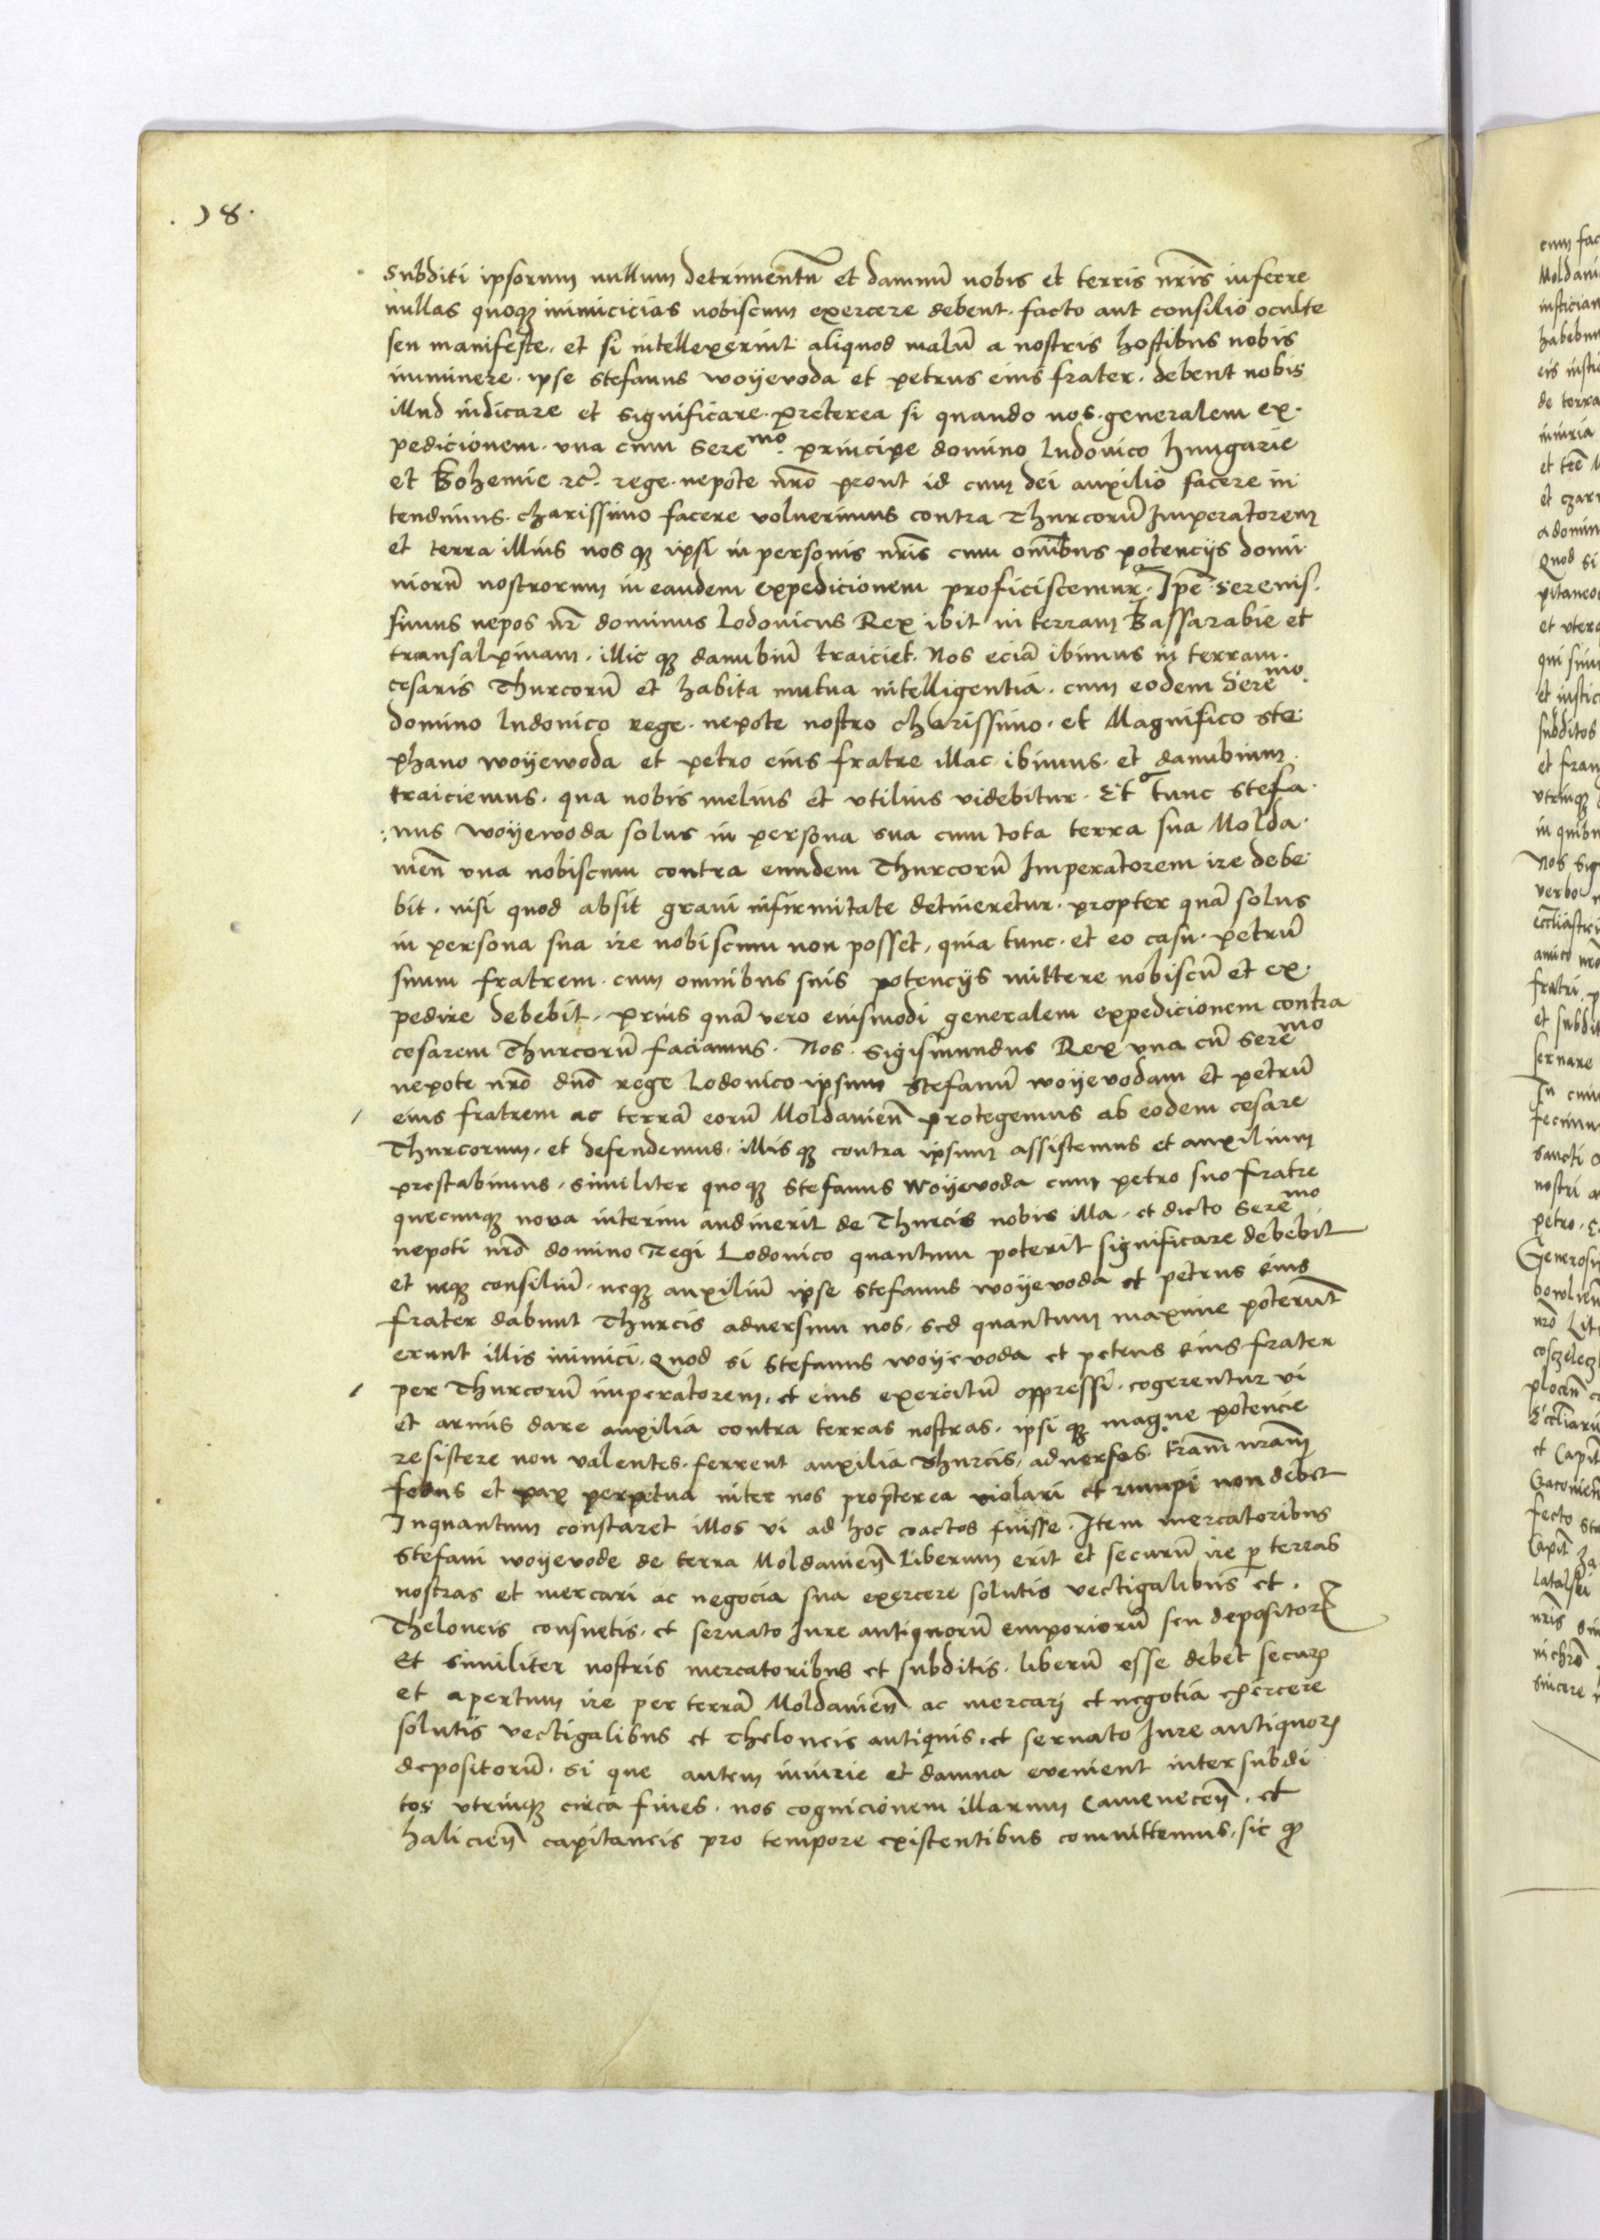 .18.
subditi ipsorum nullum detrimentũ et damnũ nobis et terris nr̃is inferre
nullas quoqꝫ inimicicias nobiscum exercere debent. facto aut consilio oculte
seu manifeste. et si intellexerint aliquod malũ a nostris hostibus nobis
iminere. ipse Stefanus woyevoda et petrus eius frater. debent nobis
illud indicare et significare. preterea si quando nos. generalem ex.
pedicionem. vna cum Sereᵐᵒ. principe domino ludovico hungarie
et Bohemie ꝛc̃. rege. nepote nr̃o prout id cum dei auxilio facere in
tendimus. charissimo facere voluerimus contra Thurcorũ Imperatorem
et terra illius nos qꝫ ipsi in personis nr̃is cum om̃ibus potencijs domi
niorũ nostrorum in eandem expedicionem proficiscemur. Ip̃e serenis.
simus nepos nr̃ dominus Lodovicus Rex ibit in terram Bassarabie et
transalpinam. illic qꝫ danubiũ traiciet. Nos eciã ibimus in terram.
cesaris Thurcorũ et habita mutua intelligentia. cum eodem Sereᵐᵒ.
domino ludovico rege. nepote nostro charissimo. et Magnifico ste
phano woyewoda et petro eius fratre illac ibimus. et danubium.
traiciemus. qua nobis melius et vtilius videbitur. Et tunc stefa.
nus woyewoda solus in persona sua cum tota terra sua Molda.
vien̄ vna nobiscum contra eundem Thurcorũ Imperatorem ire debe
bit. nisi quod absit gravi infirmitate detineretur. propter quã solus
in persona sua ire nobiscum non posset, quia tunc. et eo casu. petrũ
suum fratrem. cum omnibus suis potencijs mittere nobiscũ et ex.
pedire debebit. prius quã vero eiusmodi generalem expedicionem contra
cesarem Thurcorũ faciamus. Nos. Sigismundus Rex vna cũ Sereᵐᵒ
nepote nr̃o dño rege Lodovico ipsum Stefanũ woyevodam et petrũ
eius fratrem ac terrã eorũ Moldavien̄ protegemus ab eodem cesare
Thurcorum. et defendemus. illis qꝫ contra ipsum assistemus et auxilium
prestabimus. similiter quoqꝫ Stefanus woyevoda cum petro suo fratre
quecumqꝫ nova interim audiverit de Thurcis nobis illa. et dicto Sereᵐᵒ
nepoti nr̃o domino Regi Lodovico quantum poterit significare debebit
et neqꝫ consiliũ. neqꝫ auxiliũ ipse Stefanus woyevoda et petrus eius
frater dabunt Thurcis adversum nos, sed quantum maxime poterunt
erunt illis inimici. Quod si Stefanus woyevoda et petrus eius frater
per Thurcorũ imperatorem. et eius exercitũ oppressi. cogerentur vi
et armis dare auxilia contra terras nostras. ipsi qꝫ magne potencie
resistere non valentes. ferrent auxilia Thurcis, adversos. tr̃am nr̃am
fedus et pax perpetua inter nos propterea violari et rumpi non debet
Inquantum constaret illos vi ad hoc coactos fuisse. Item mercatoribus
Stefani woyevode de terra Moldavien̄ liberum erit et securũ ire ꝑ terras
nostras et mercari ac negocia sua exercere solutis vectigalibus et.
Theloneis consuetis. et servato Iure antiquorũ emporiorũ seu depositorꝝ
Et similiter nostris mercatoribus et subditis. liberũ esse debet securꝫ
et apertum ire per terrã Moldavien̄ ac mercarj et negotia exercere
solutis vectigalibus et Theloneis antiquis. et servato Iure antiquorꝫ
depositorũ. si que autem iniurie et damna evenient inter subdi
tos vtrinqꝫ circa fines. nos cognicionem illarum Camenecen̄. et
halicien̄ capitaneis pro tempore existentibus comittemus. sic qꝫ